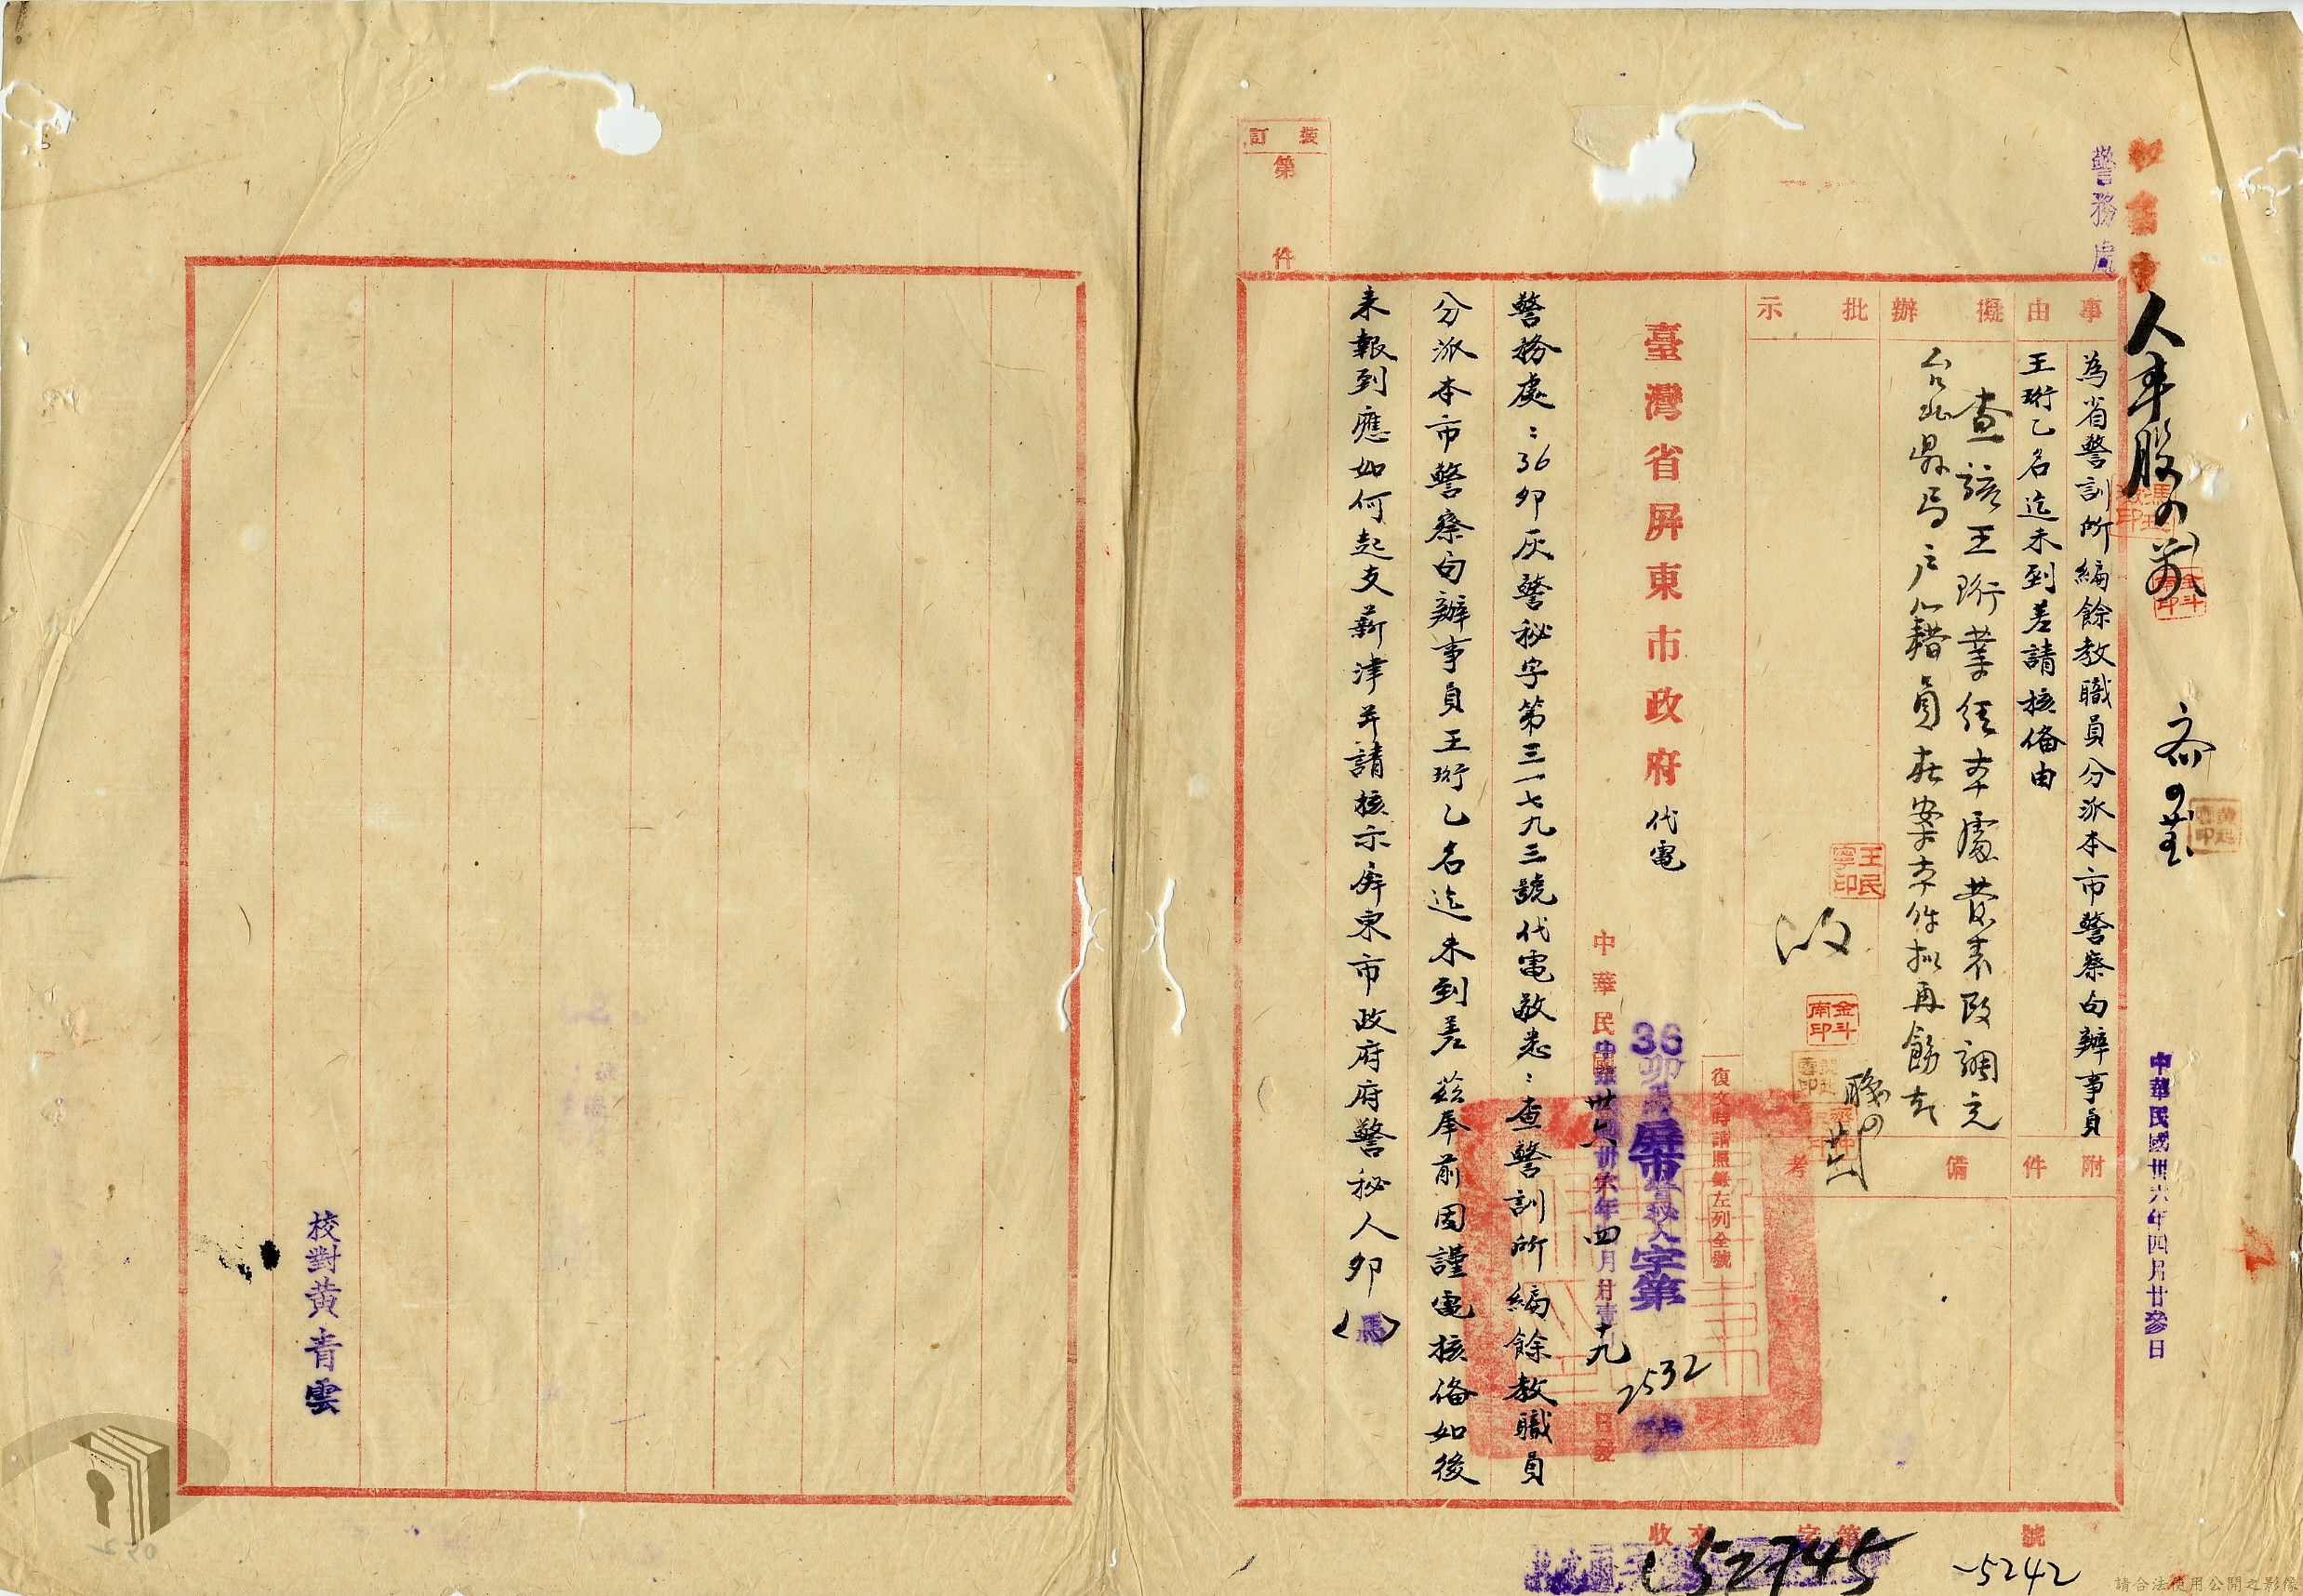 警務處
人事股
中華民國卅六年四月廿參日
事由
為省警訓所編餘教職員分派本市警察局辦事員
王珩乙名迄未到差請核備由
擬辦
查該王珩業經本處發表改調充
台北縣局戶籍員在案本件擬再飭知
批示
附件
備考
王民寧印
金斗南印
臺灣省屏東市政府代電
復文時請照錄左列全號
36卯馬屏市警秘人字第2532號
中華民國卅六年四月十九日發
警務處：36卯灰警秘字第三一七九三號代電敬悉：查警訓所編餘教職員
分派本市警察局辦事員王珩乙名迄未到差茲奉前因謹電核備如後
未報到應如何起支薪津并請核示屏東市政府府警秘人卯（馬）
裝訂
第 件
校對黃青雲
收文 字第 號
52745
5242
請合法使用公開之影像